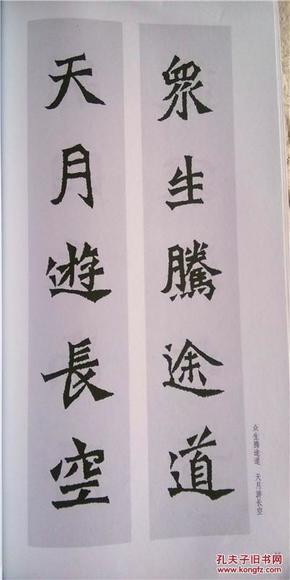 眾生騰途道
天月遊長空
众生腾途道 天月游长空
孔夫子旧书网
www.kongfz.com